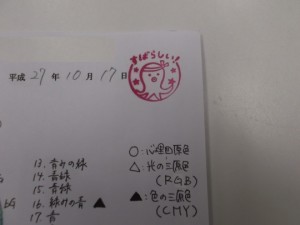 すばらしい!
平成 27 年 10 月 17 日
13. 青みの緑
14. 青緑
15. 青緑
16. 緑みの青 ▲
17. 青
○: 心理四原色
△: 光の三原色
(RGB)
▲: 色の三原色
(CMY)